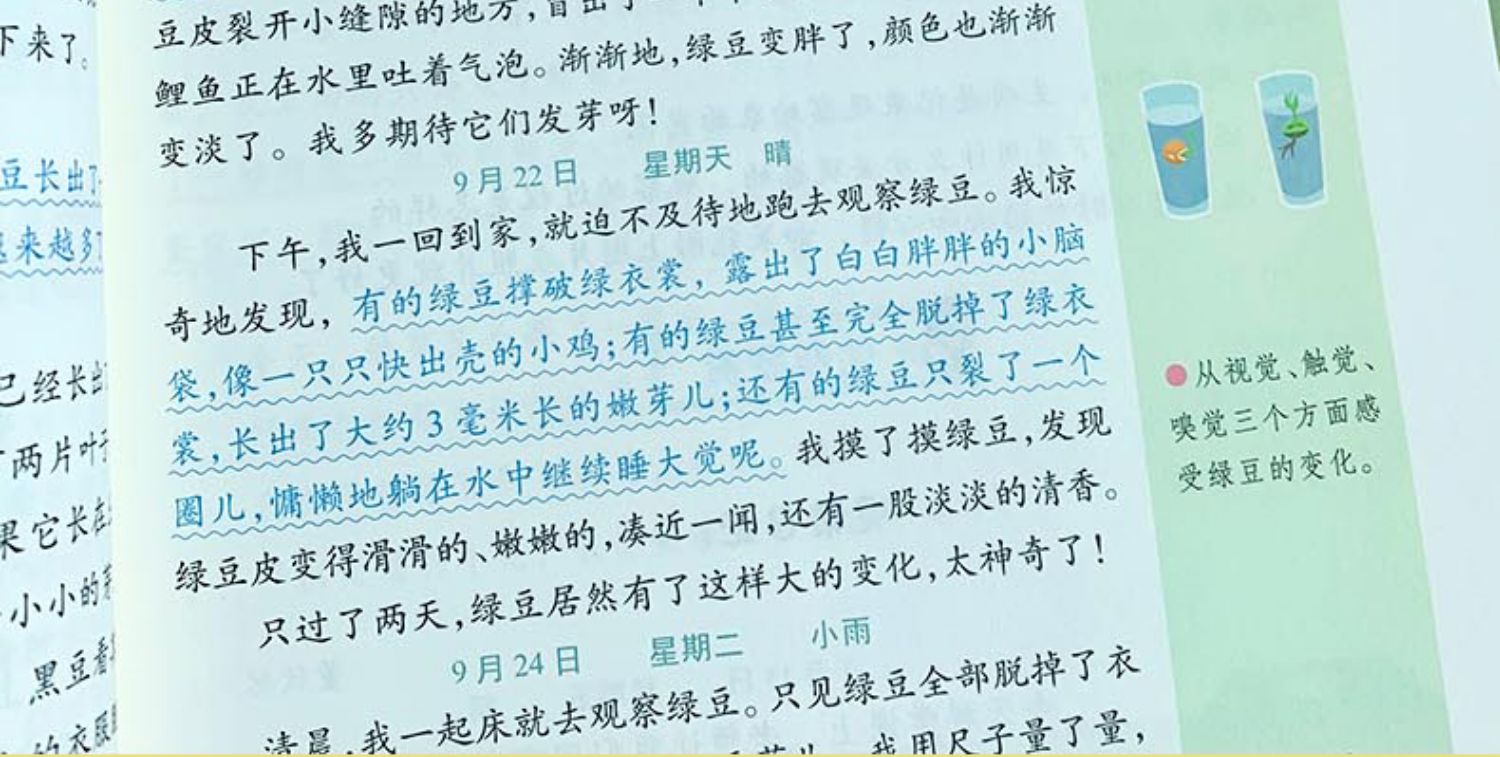 下来了。
豆长出了
越来越多
已经长出
两片叶子
果它长在
小小的
黑豆看
的衣服
豆皮裂开小缝隙的地方,冒出了一
鲤鱼正在水里吐着气泡。渐渐地,绿豆变胖了,颜色也渐渐
变淡了。我多期待它们发芽呀!
9月22日 星期天 晴
下午,我一回到家,就迫不及待地跑去观察绿豆。我惊
奇地发现,有的绿豆撑破绿衣裳,露出了白白胖胖的小脑
袋,像一只只快出壳的小鸡;有的绿豆甚至完全脱掉了绿衣
裳,长出了大约3毫米长的嫩芽儿;还有的绿豆只裂了一个
圈儿,慵懒地躺在水中继续睡大觉呢。我摸了摸绿豆,发现
绿豆皮变得滑滑的、嫩嫩的,凑近一闻,还有一股淡淡的清香。
只过了两天,绿豆居然有了这样大的变化,太神奇了!
9月24日 星期二 小雨
清晨,我一起床就去观察绿豆。只见绿豆全部脱掉了衣
我用尺子量了量,
从视觉、触觉、
嗅觉三个方面感
受绿豆的变化。